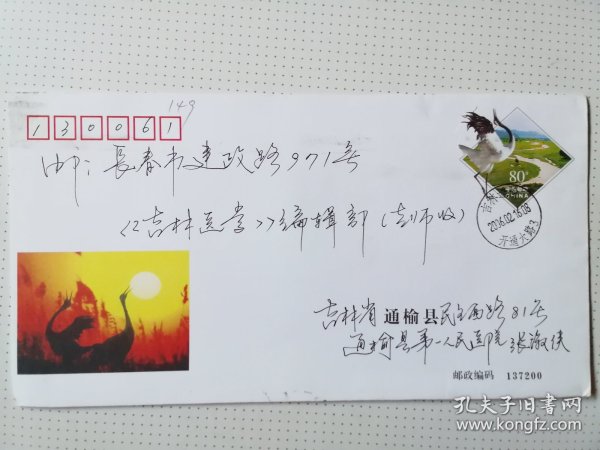 149
130061
邮：長春市建政路971号
《吉林医学》编辑部（彭师收）
80分
中国邮政
CHINA
吉林
2016.02.16.08
开通大路3
吉林省通榆县民主西路81号
通榆县第一人民医院 张
邮政编码 137200
孔夫子旧书网
www.kongfz.com